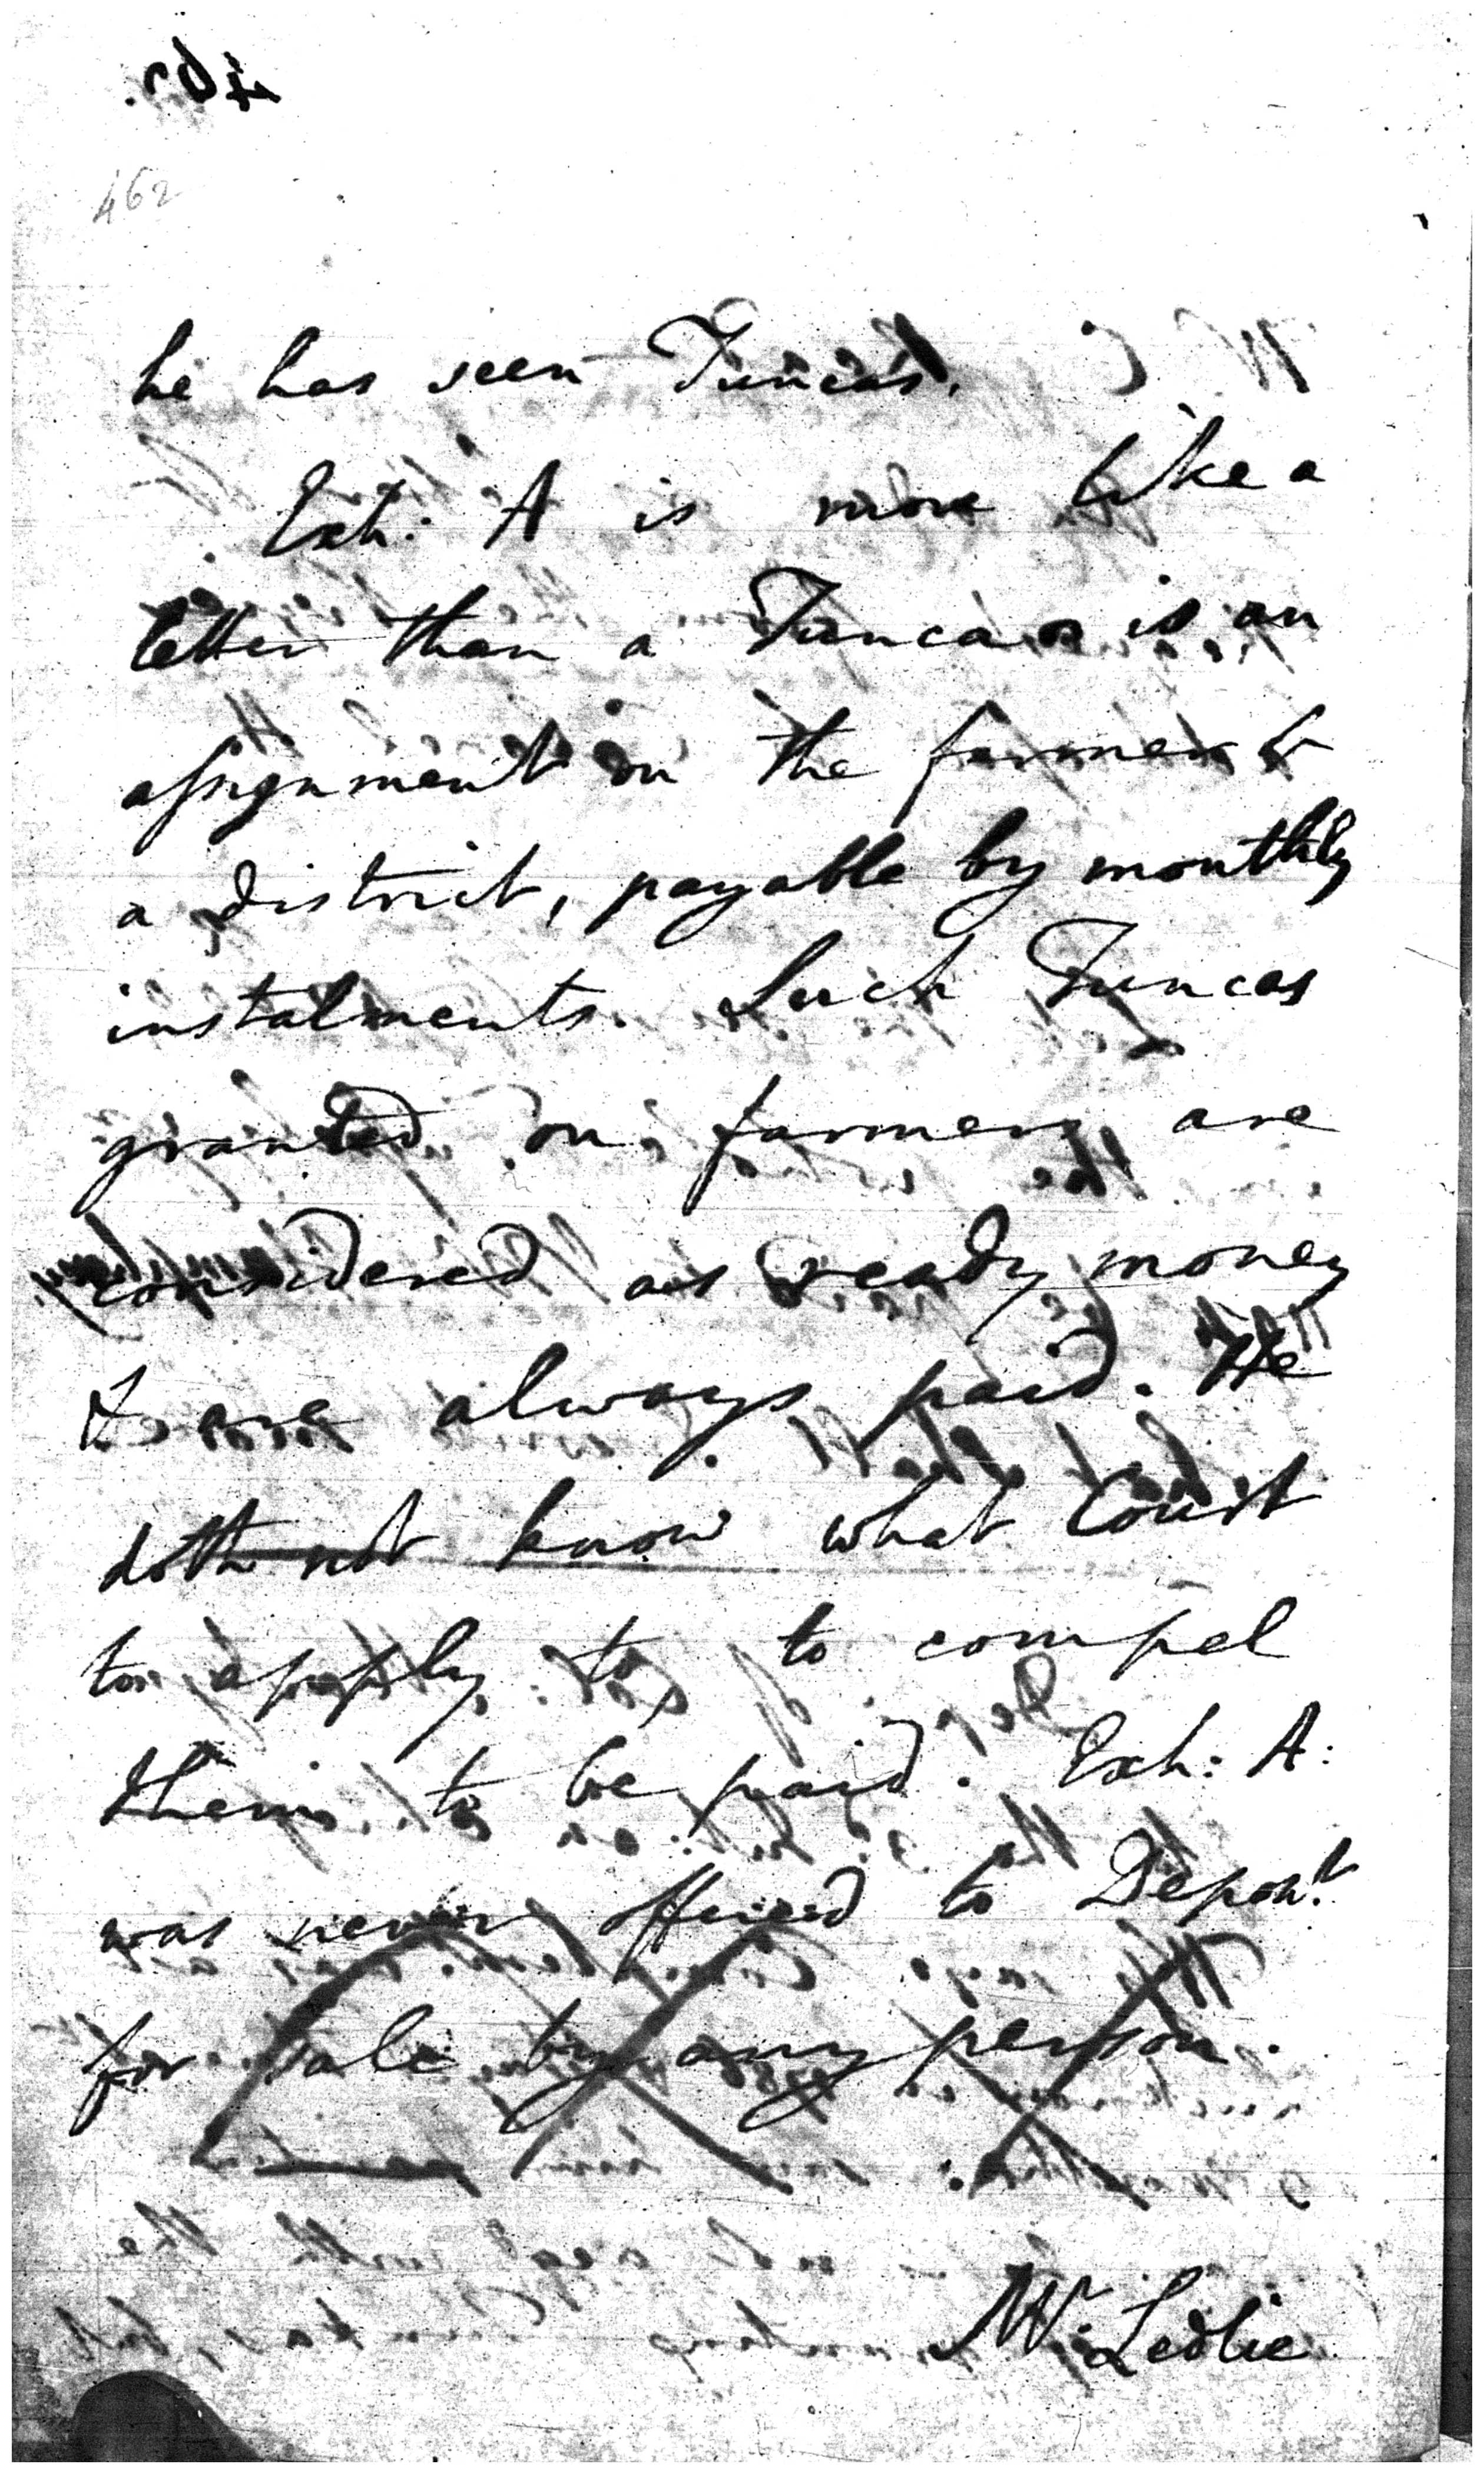 462
he has seen Tuncas.
Exh: A is more like a
letter than a Tunca is an
assignment on the farmer of
a district, payable by monthly
instalments. Such Tuncas
granted on farmers are
considered as ready money
& are always paid. He
doth not know what Court
to apply to, to compel
them to be paid. Exh: A:
was never offered to Depont
for sale by any person.
W Ledlie